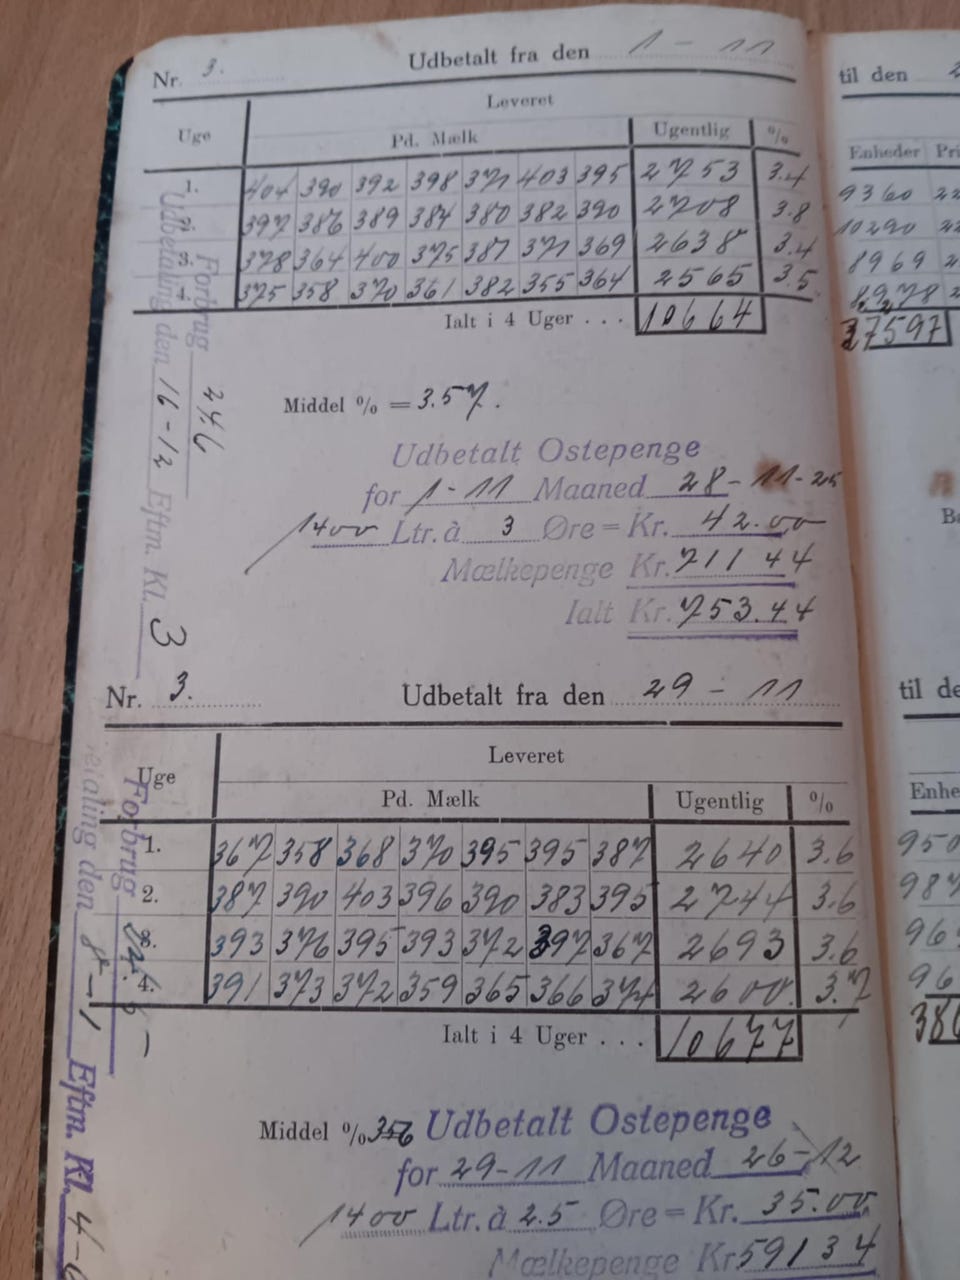 Nr. 3. Udbetalt fra den 1 - 11 til den
Leveret
Uge Pd. Mælk Ugentlig % Enheder Pri
1. 404 390 392 398 371 403 395 2753 3.4 9360 22
2. 397 386 389 384 380 382 390 2708 3.8 10290 22
3. 378 364 400 375 387 371 369 2638 3.4 8969 2
4. 375 358 370 361 382 355 364 2565 3.5 8978 2
Ialt i 4 Uger . . . 10664 37597
Middel % = 3.57.
Udbetalt Ostepenge
for 1-11 Maaned 28-11-25
1400 Ltr. à 3 Øre = Kr. 42.00
Mælkepenge Kr. 711 44
Ialt Kr. 753.44
Forbrug 246
Udbetaling den 16-12 Eftm. Kl. 3
Nr. 3. Udbetalt fra den 29 - 11 til de
Leveret
Uge Pd. Mælk Ugentlig % Enhe
1. 367 358 368 370 395 395 387 2640 3.6 950
2. 387 390 403 396 390 383 395 2744 3.6 987
3. 393 376 395 393 372 397 367 2693 3.6 96
4. 391 373 372 359 365 366 374 2600. 3.7 96
Ialt i 4 Uger . . . 10677 386
Middel % 356 Udbetalt Ostepenge
for 29-11 Maaned 26-12
1400 Ltr. à 2.5 Øre = Kr. 35.00
Mælkepenge Kr 591 34
Forbrug
den 8-1 Eftm. Kl. 4-6